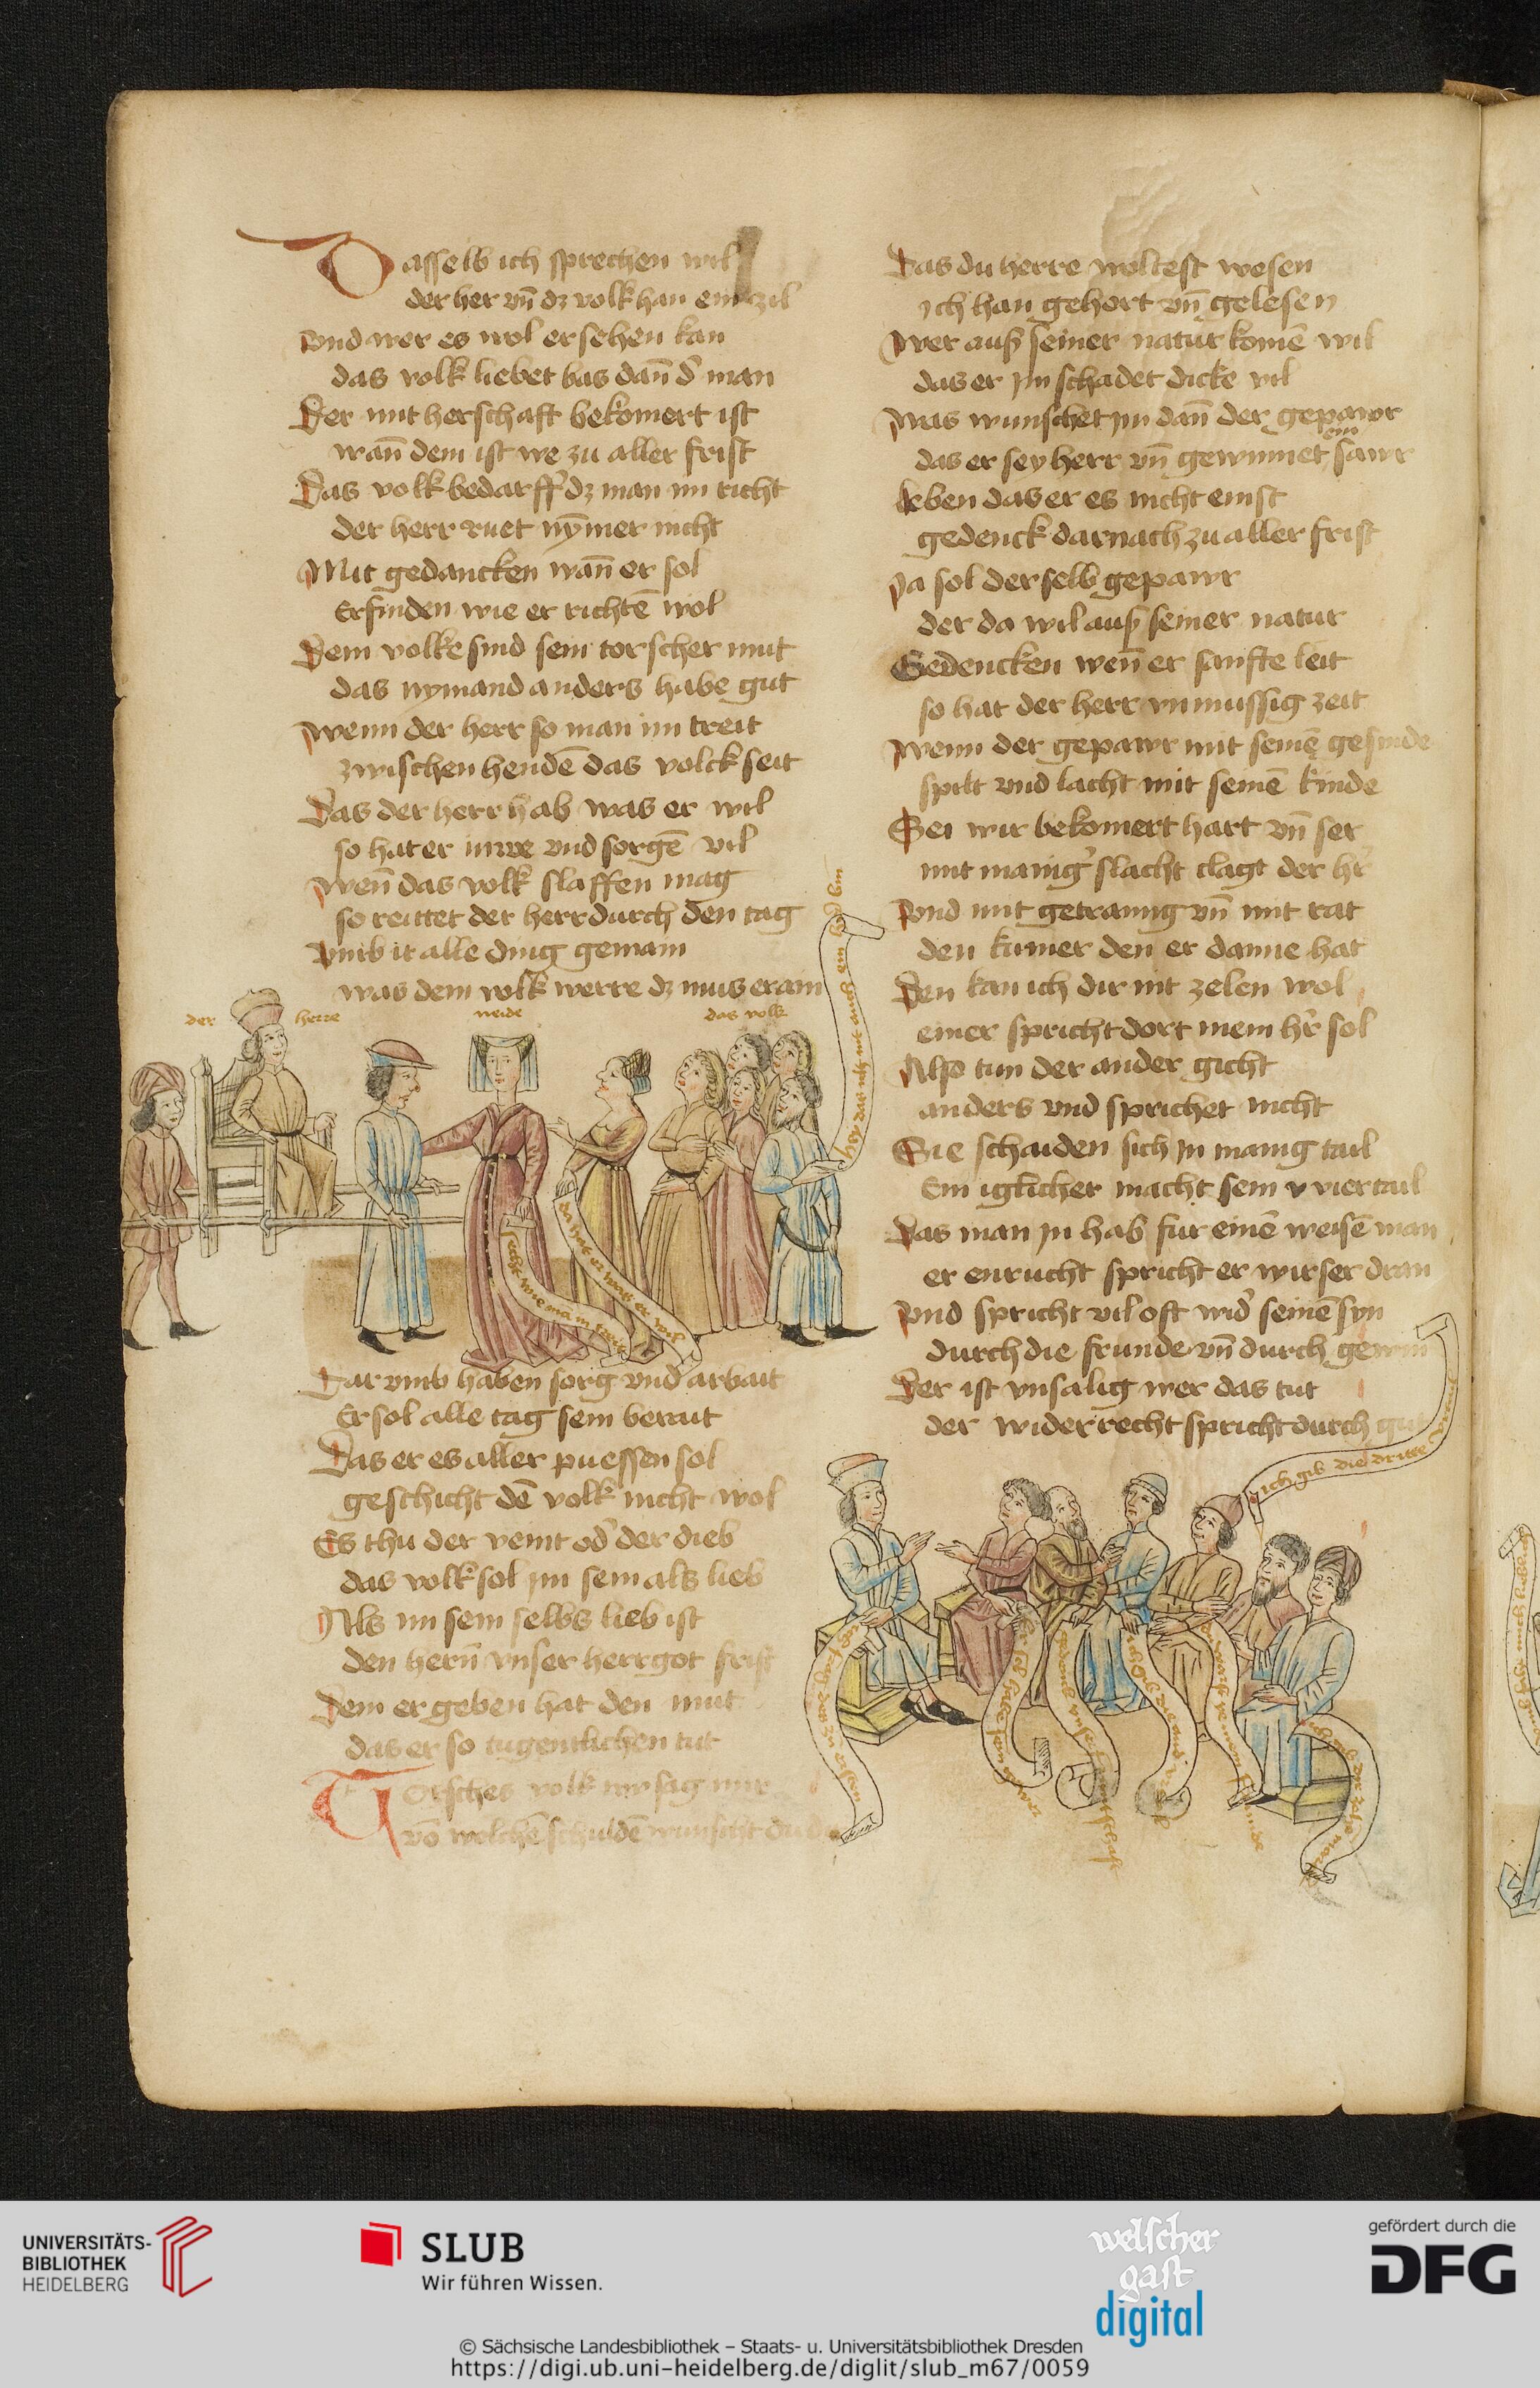 Dasselb ich sprechen wil
der her vn̄ dz volk han ein zil
vnd wer es wol ersehen kan
das volk liebet bas dan̄ d' man
Der mit herschaft bekomert ist
wan̄ dem ist we zu aller frist
Das volk bedarff dz man im richt
der herr ruet nȳmer nicht
Mit gedancken wan̄ er sol
Erfinden wie er richtē wol
Dem volke sind sein torscher mut
das nymand anders habe gut
wenn der herr so man im treit
zwischen hendē das volck seit
Das der herr hab was er wil
so hat er in we vnd sorgē vil
wen̄ das volk slaffen mag
so reittet der herr durch den tag
vmb it alle ding gemain
was dem volk werre dz mus er ain
der herre
neide
das volk
secht wie man in treit
da hat er was er wil
Dar vmb haben sorg vnd arbait
Er sol alle tag sein berait
Das er es aller puessen sol
geschicht dē volk nicht wol
Es thu der veint od' der dieb
das volk sol jm sein als lieb
Als im sein selbs lieb ist
den hern̄ vnser herrgot frist
Dem er geben hat den mut
das er so tugentlichen tut
Torsches volk nw sag mir
vō welchē schuldē wunscht du
Das du herre woltest wesen
ich han gehort vn̄ gelesen
wer auß seiner natur komē wil
das er jm schadet dicke vil
was wunschet jm dan̄ der gepawr
das er sey herr vn̄ gewinnet ein sawr
leben das er es nicht enist
gedenck darnach zu aller frist
Ja sol derselb gepawr
der da wil auß seiner natur
Gedencken wen̄ er sanfte leit
so hat der herr vnmussig zeit
wenn der gepawr mit seinē gesinde
spilt vnd lacht mit seinē kinde
Sei wir bekomert hart vn̄ ser
mit manig' slacht clagt der hr̄
vnd mit getrawng vn̄ mit rat
den kumer den er danne hat
Den kan ich dir nit zelen wol
einer spricht dort mein hr̄ sol
Also tun der ander gicht
anders vnd sprichet nicht
Sie schaiden sich jn manig tail
Ein iglicher macht sein v viertail
Das man jn hab fur einē weisē man
er enrucht spricht er wirser dran
vnd spricht vil oft wid' seinē syn
durch die frunde vn̄ durch gewin
Der ist vnsalig wer das tut
der wider recht spricht durch gut
ich gib die dritte
UNIVERSITÄTS-
BIBLIOTHEK
HEIDELBERG
SLUB
Wir führen Wissen.
welscher
gast
digital
gefördert durch die
DFG
© Sächsische Landesbibliothek – Staats- u. Universitätsbibliothek Dresden
https://digi.ub.uni-heidelberg.de/diglit/slub_m67/0059